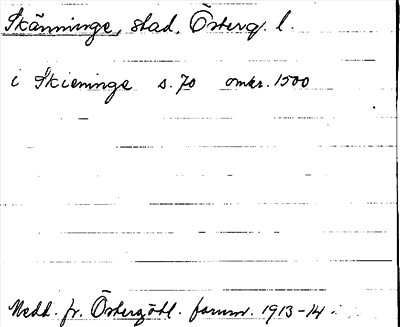 Skänninge, stad, Österg. l.
i Skieninge s. 70 omkr. 1500
Medd. fr. Östergötl. fornm. 1913-14